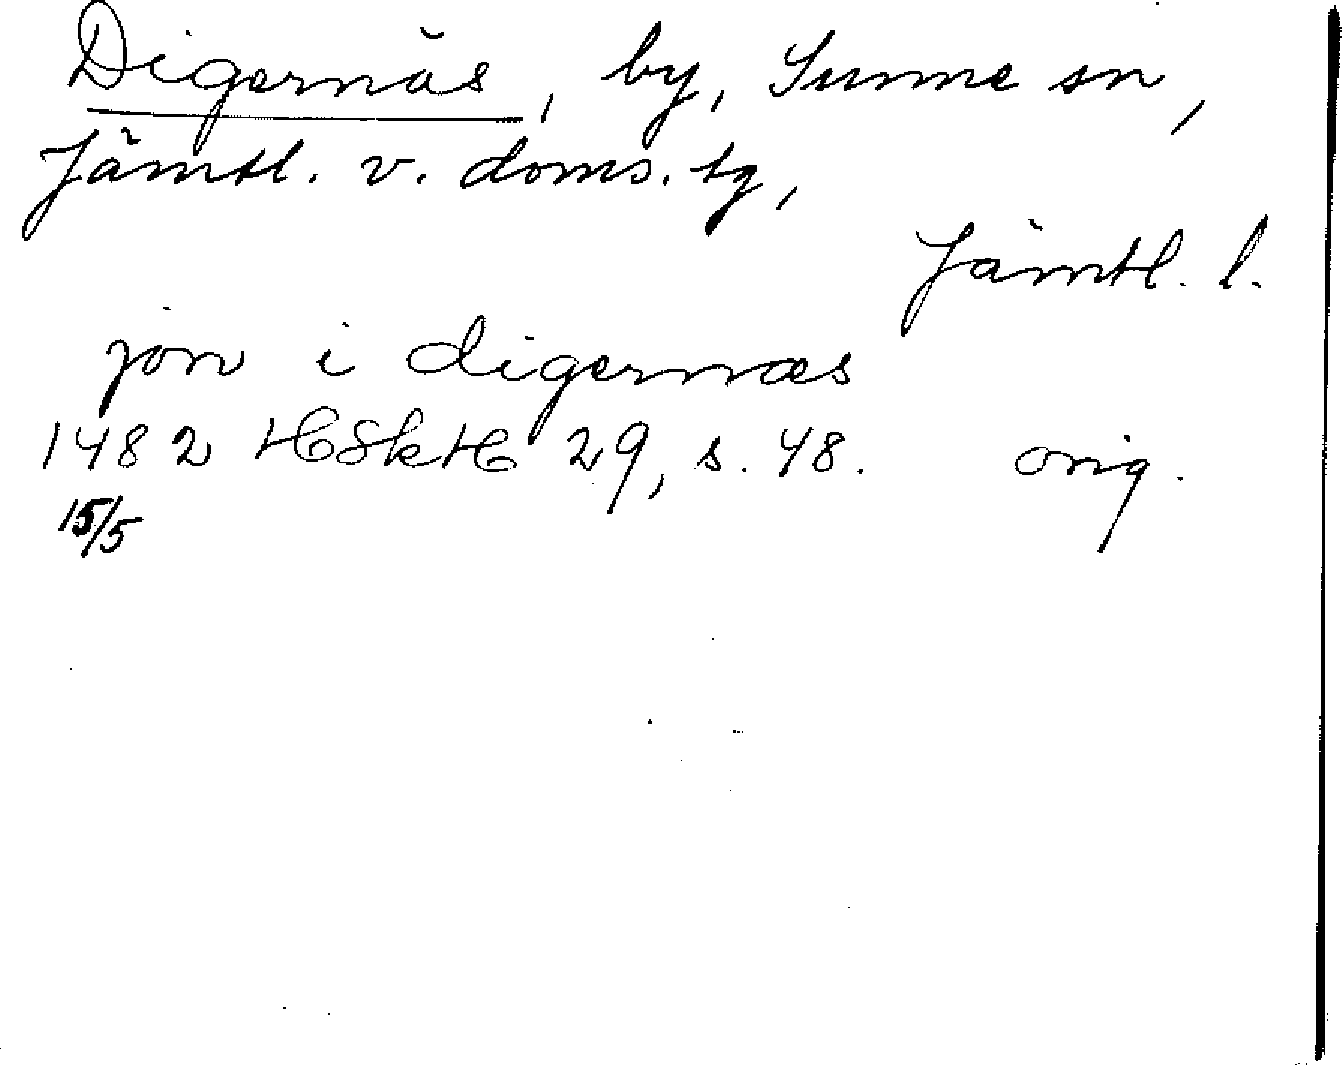 Digernäs, by, Sunne sn,
Jämtl. v. doms. tg,
Jämtl. l.
jon i digernæs
1482 HSkH 29, s. 48. orig.
15/5